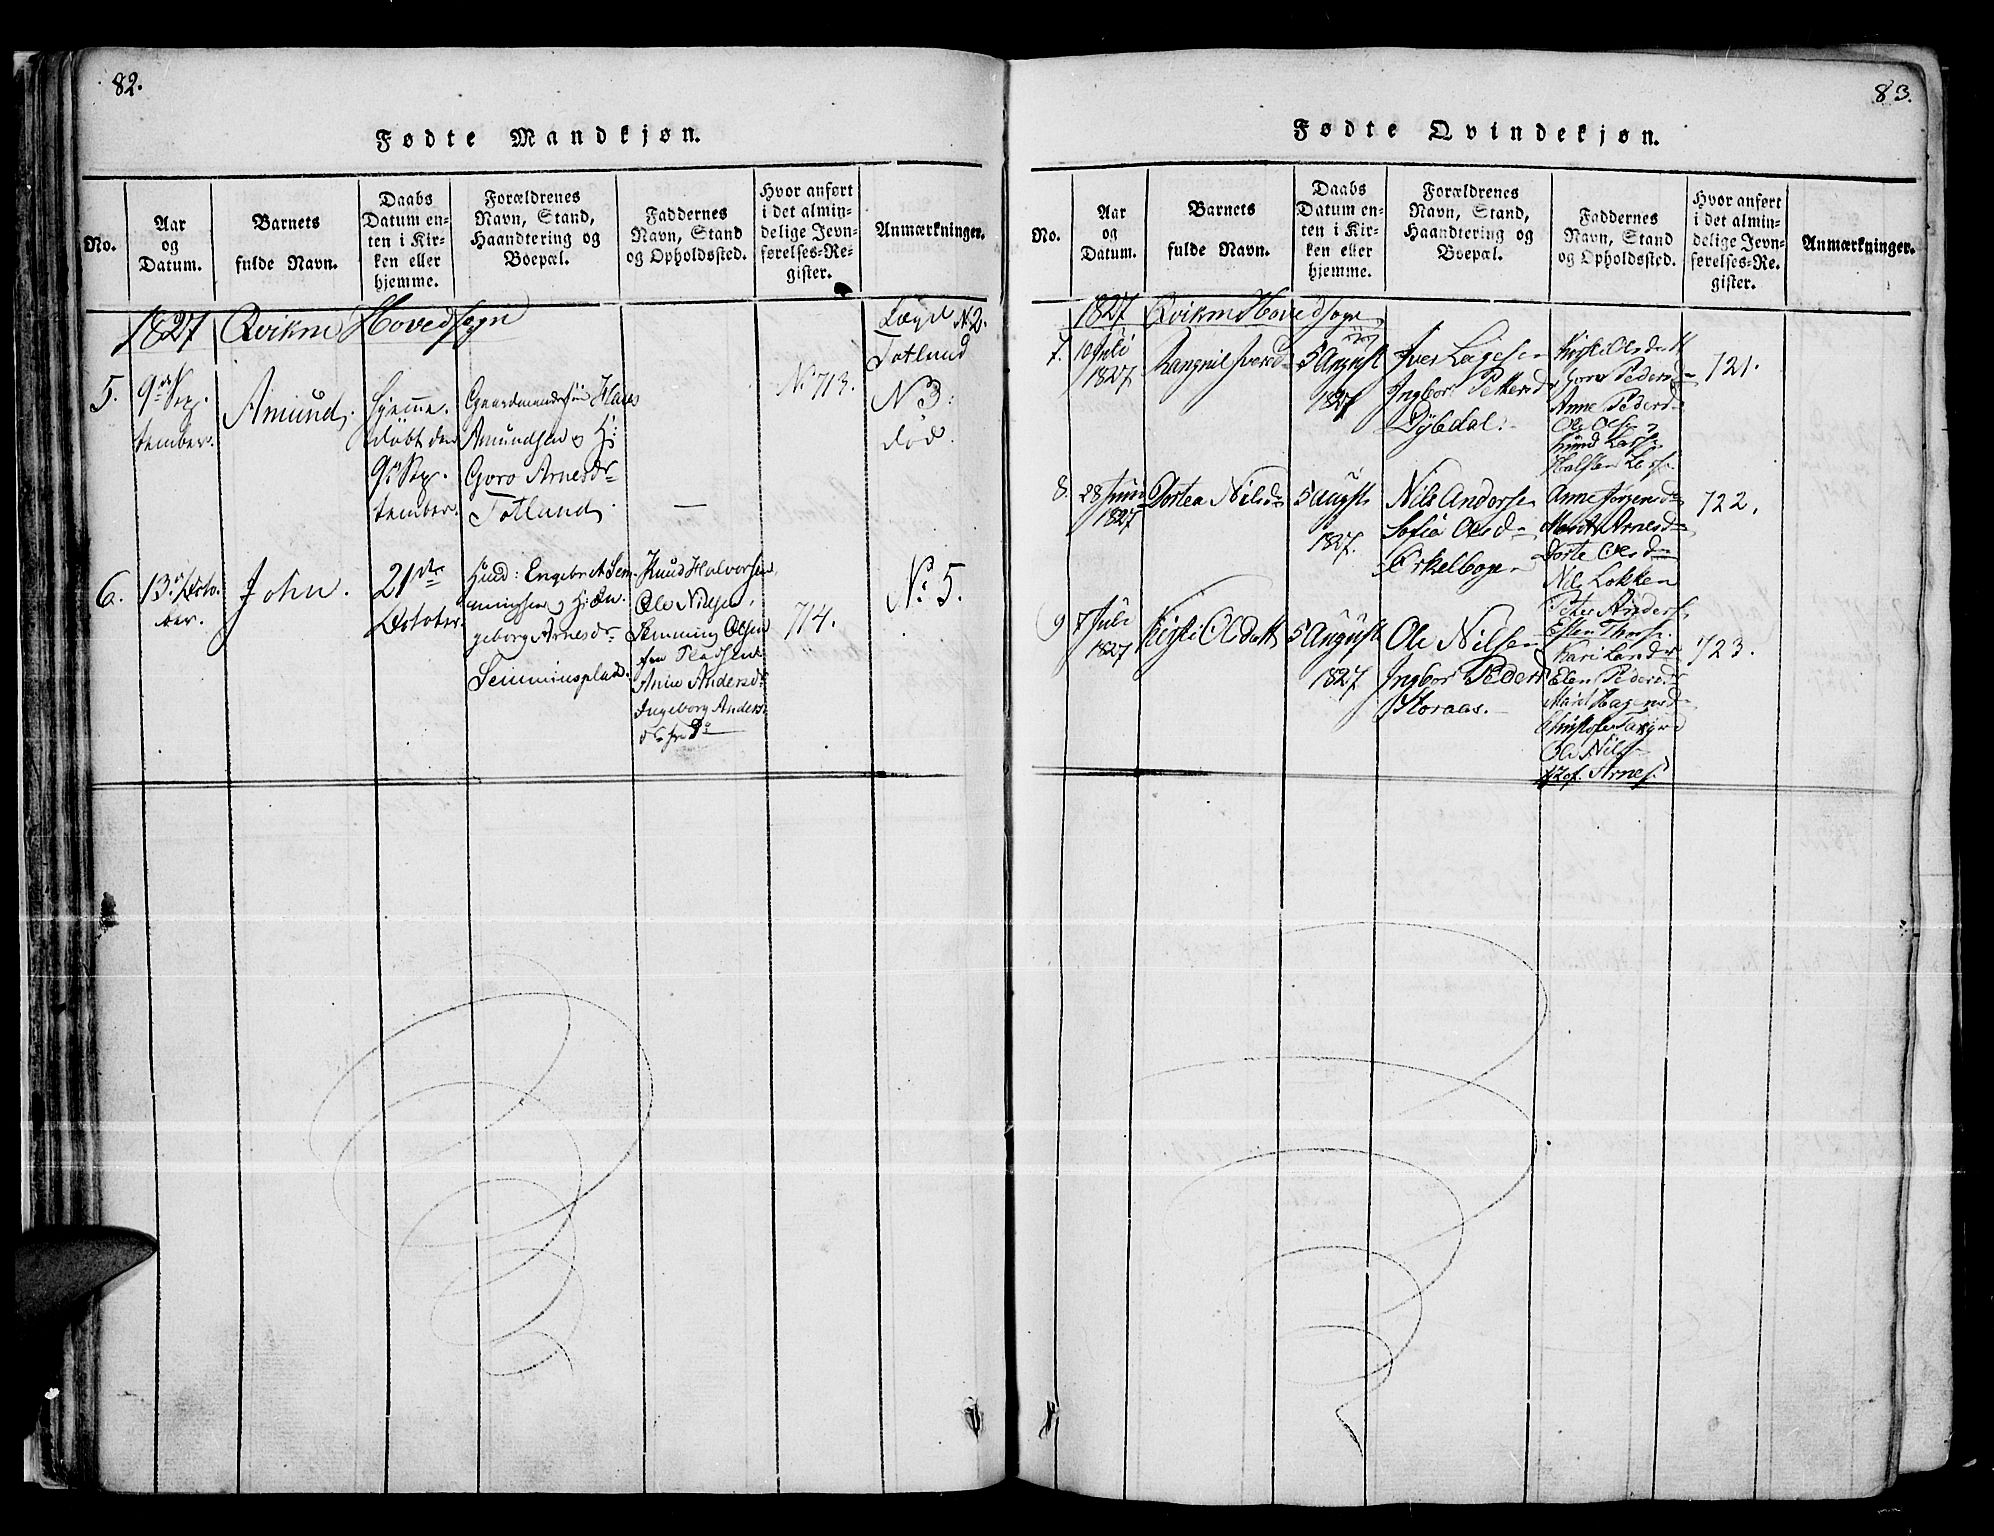 82.
Fødte Mandkjøn.
No.
Aar
og
Datum.
Barnets
fulde Navn.
Daabs
Datum en-
ten i Kir-
ken eller
hjemme.
Forældrenes
Navn, Stand,
Haandtering og
Boepæl.
Faddernes
Navn, Stand
og Opholdssted.
Hvor anført
i det almin-
delige Jevn-
førelses-Re-
gister.
Anmærkninger.
1827 Qvikne Hovedsogn
5.
9de Sep-
tember.
Amund.
Hjemme-
døbt den
9de Sep-
tember.
Gaardmandssøn Hans
Amundsen og H:
Goro Arnesdr
Totland.
—
No 713.
Lægd No 2.
Totland
No 3:
død.
6.
13de Octo-
ber.
John.
21de
October.
Huusd: Engebret Sem-
mingsen og H: In-
geborg Arnesdr
Semminsplads.
Knud Halvorsen,
Ole Nilsen,
Semming Olsen
Anne Andersdr
Ingeborg Anders-
714.
No. 5.
83.
Fødte Qvindekjøn.
No.
Aar
og
Datum.
Barnets
fulde Navn.
Daabs
Datum en-
ten i Kir-
ken eller
hjemme.
Forældrenes
Navn, Stand,
Haandtering og
Boepæl.
Faddernes
Navn, Stand
og Opholdssted.
Hvor anført
i det almin-
delige Jevn-
førelses-Re-
gister.
Anmærkninger.
1827 Qvikne Hovedsogn
7.
10 Juli
1827
Rangnil Iversd
5 August
1827
Iver Lagesen
Ingbor Pettersd
Dybdal.
Kirsti Olsdatt
Goro Pedersd
Anne Pedersd
Ole Olsen
Halsten Larsen
721.
8.
28 Juni
1827
Dortea Nilsd
5 August
1827.
Nils Andersen
Sofia Olsd
Erkelbogen
Anne Jørgensd
Marit Arnesd
Dorte Olsd
Nils Løkken
Peter Anders
Esten Thors
722.
9
7 Juli
1827
Kirsti Olsdatt
5 August
1827
Ole Nilsen
Ingbor Peders
Storaas.
Kari Larsdr
Elen Pedersdr
Marit Hagensd
Ole Nils
Arnes
723.